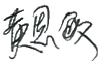 黄恩敏